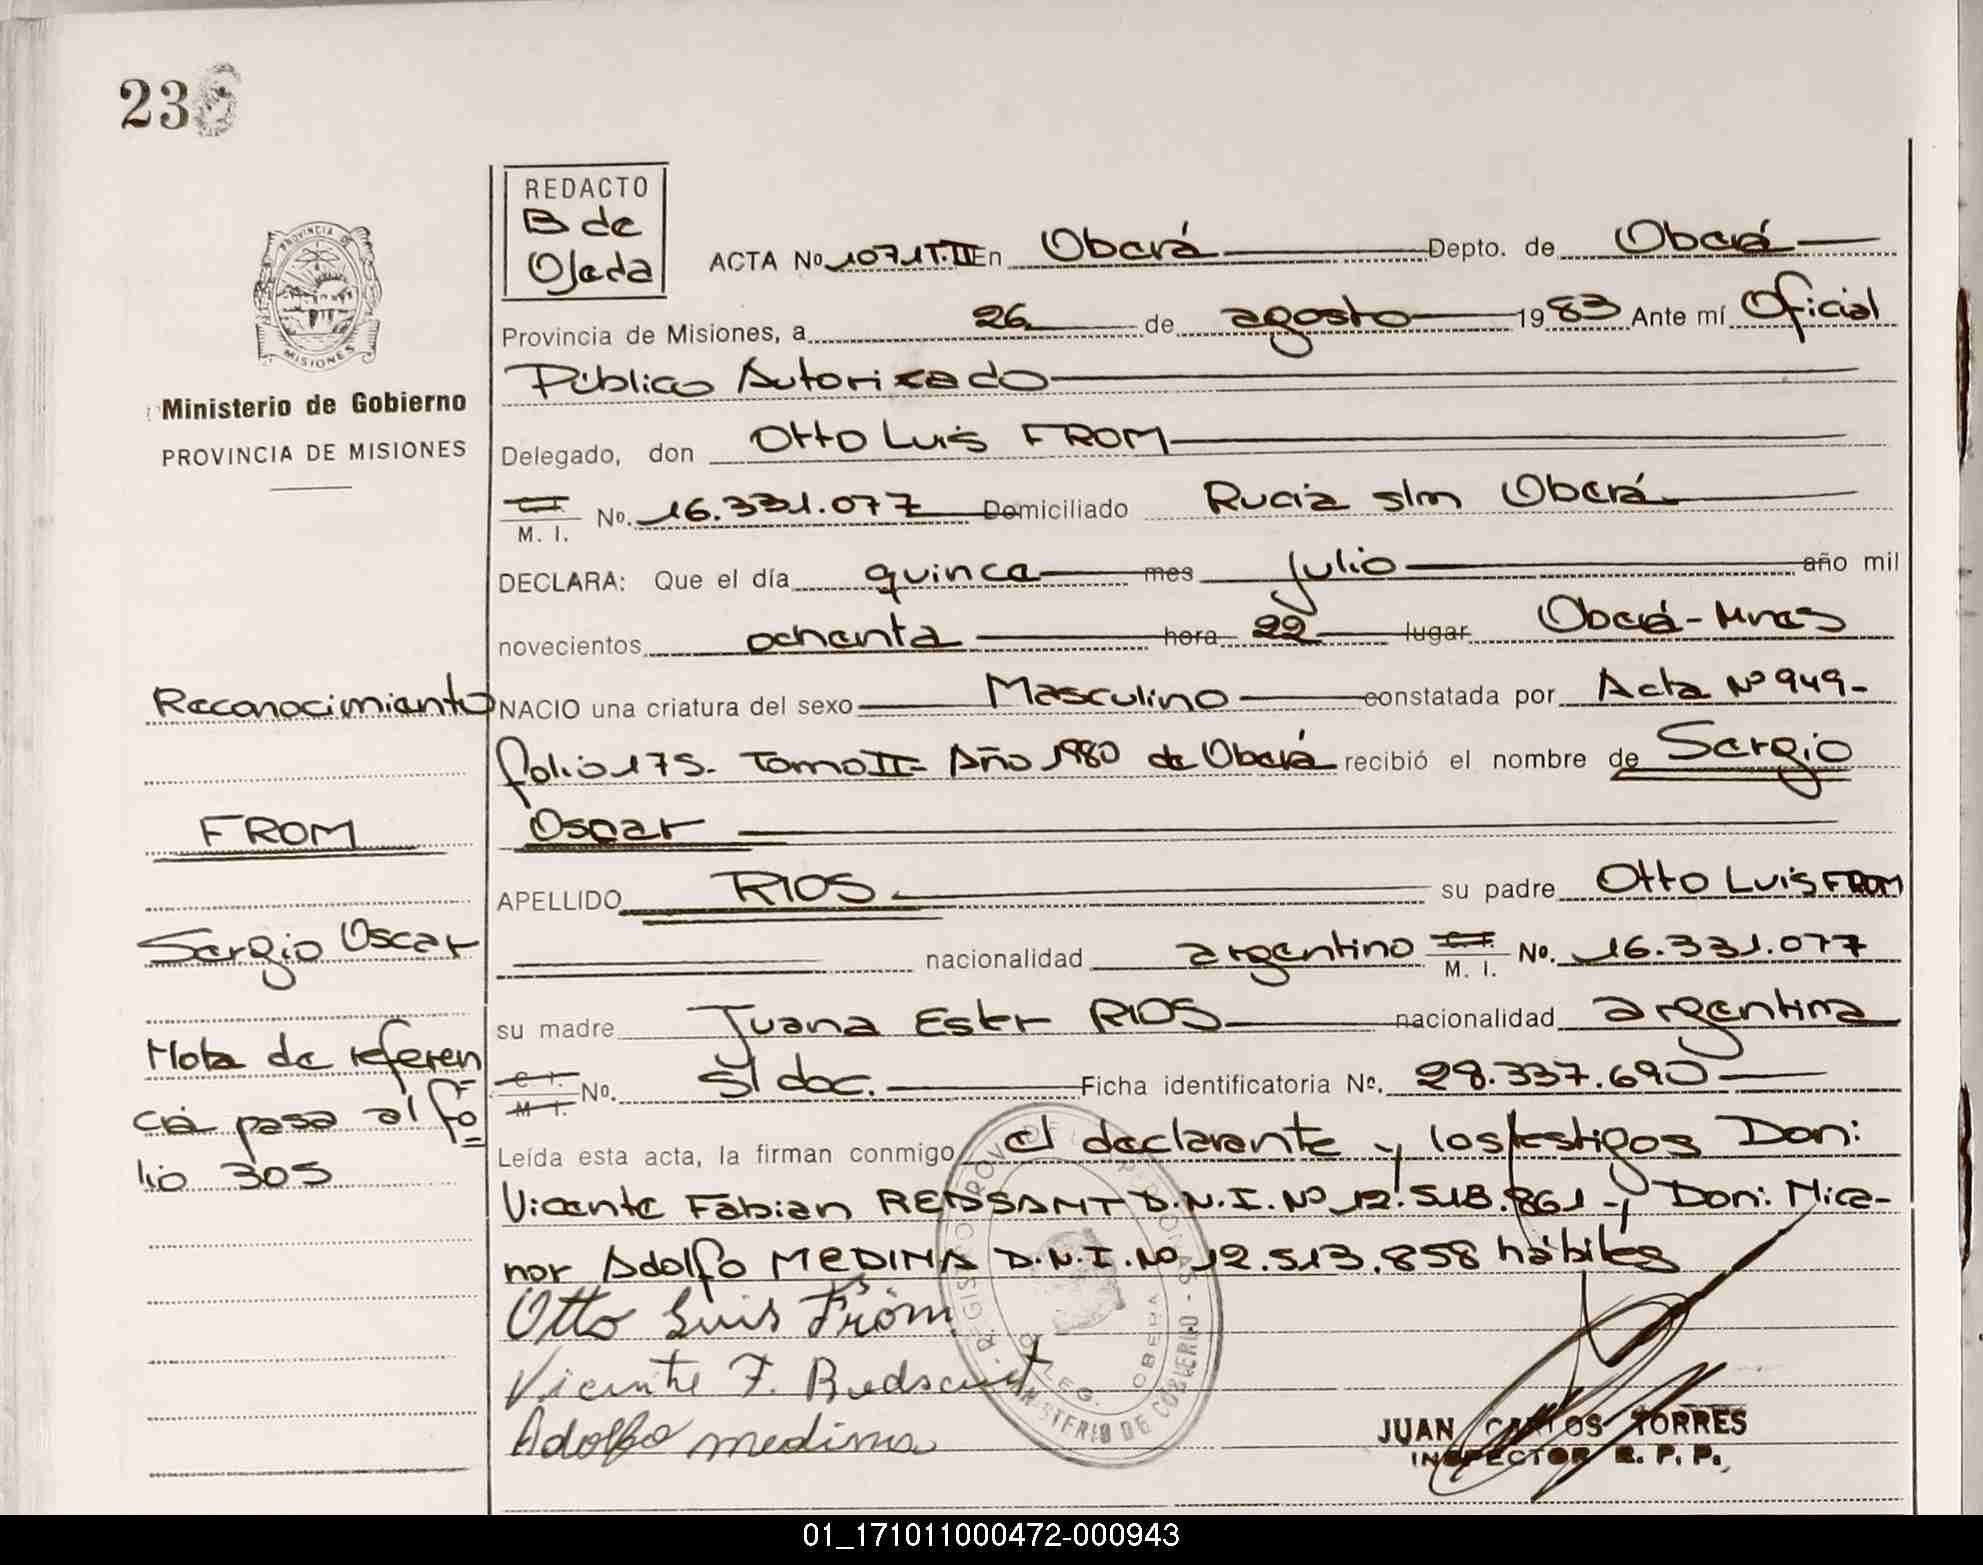 236
REDACTO
B de
Ojeda
ACTA No 1071 T.II En Oberá Depto. de Oberá
Provincia de Misiones, a 26 de agosto 1983 Ante mí Oficial
Público Autorizado
PROVINCIA DE MISIONES
Ministerio de Gobierno
PROVINCIA DE MISIONES
Delegado, don Otto Luis FROM
C.I. M. I. No. 16.331.077 Domiciliado Rucia s/m Oberá
DECLARA: Que el día quince mes julio año mil
novecientos ochenta hora 22 lugar Oberá-Mnes
Reconocimiento
NACIO una criatura del sexo Masculino constatada por Acta Nº 949-
folio 175- Tomo II- Año 1980 de Oberá recibió el nombre de Sergio
FROM
Oscar
APELLIDO RIOS su padre Otto Luis FROM
Sergio Oscar
nacionalidad argentino C.I. M. I. No. 16.331.077
su madre Juana Ester RIOS nacionalidad argentina
Nota de referen
C.I. M.I. No. s/ doc. Ficha identificatoria No. 28.337.690
cia pasa al fo
Leída esta acta, la firman conmigo el declarante y los testigos Don:
lio 305
Vicente Fabian REDSSANT D.N.I. Nº 12.518.861 y Don: Nica-
nor Adolfo MEDINA D.N.I. Nº 12.513.858 hábiles
Otto Luis From
Vicente F.
Adolfo medina
REGISTRO PROV. DE LAS PERSONAS - MINISTERIO DE GOBIERNO -
DELEG. OBERA
JUAN CARLOS TORRES
INSPECTOR R. P. P.
01_171011000472-000943